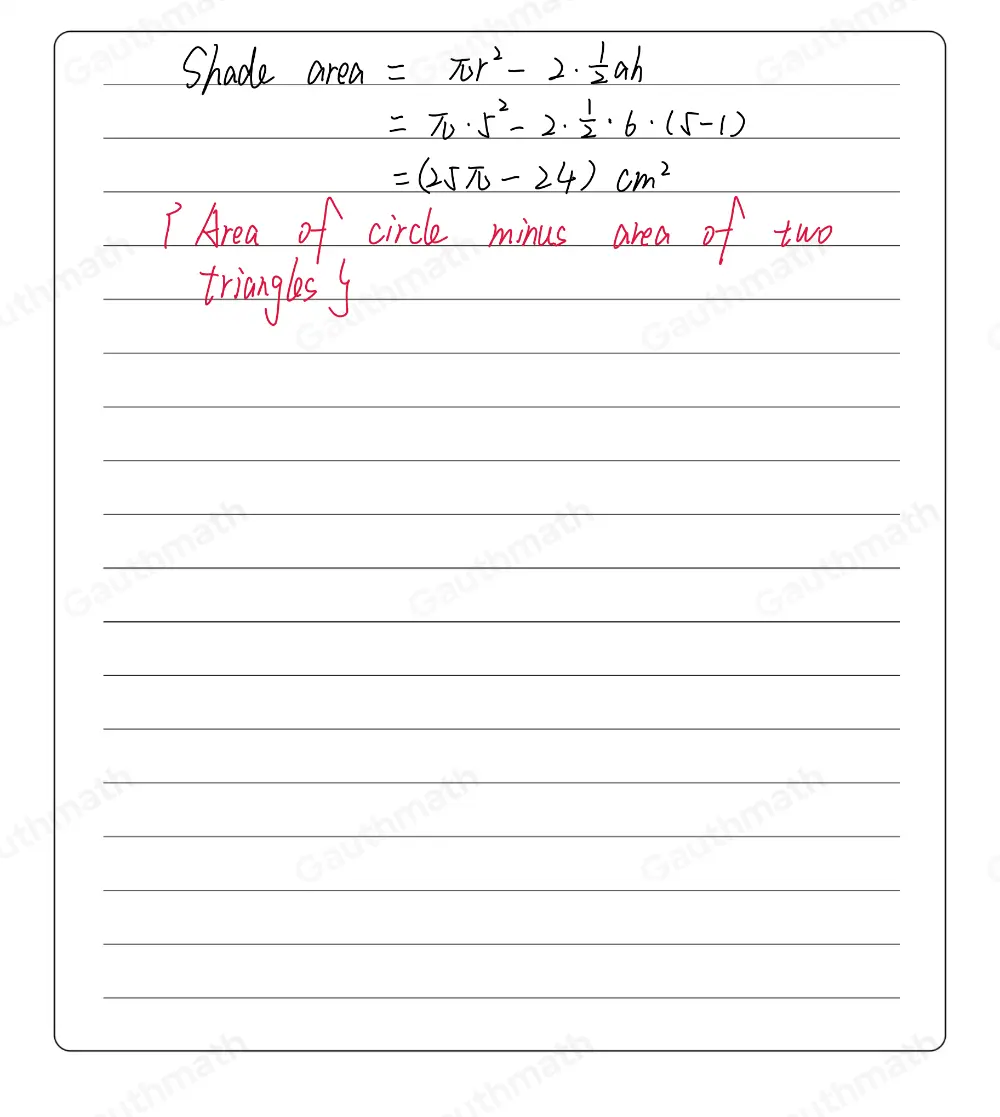 Shade area = πr² - 2·½ah
= π·5² - 2·½·6·(5-1)
= (25π - 24) cm²
{ Area of circle minus area of two
triangles }